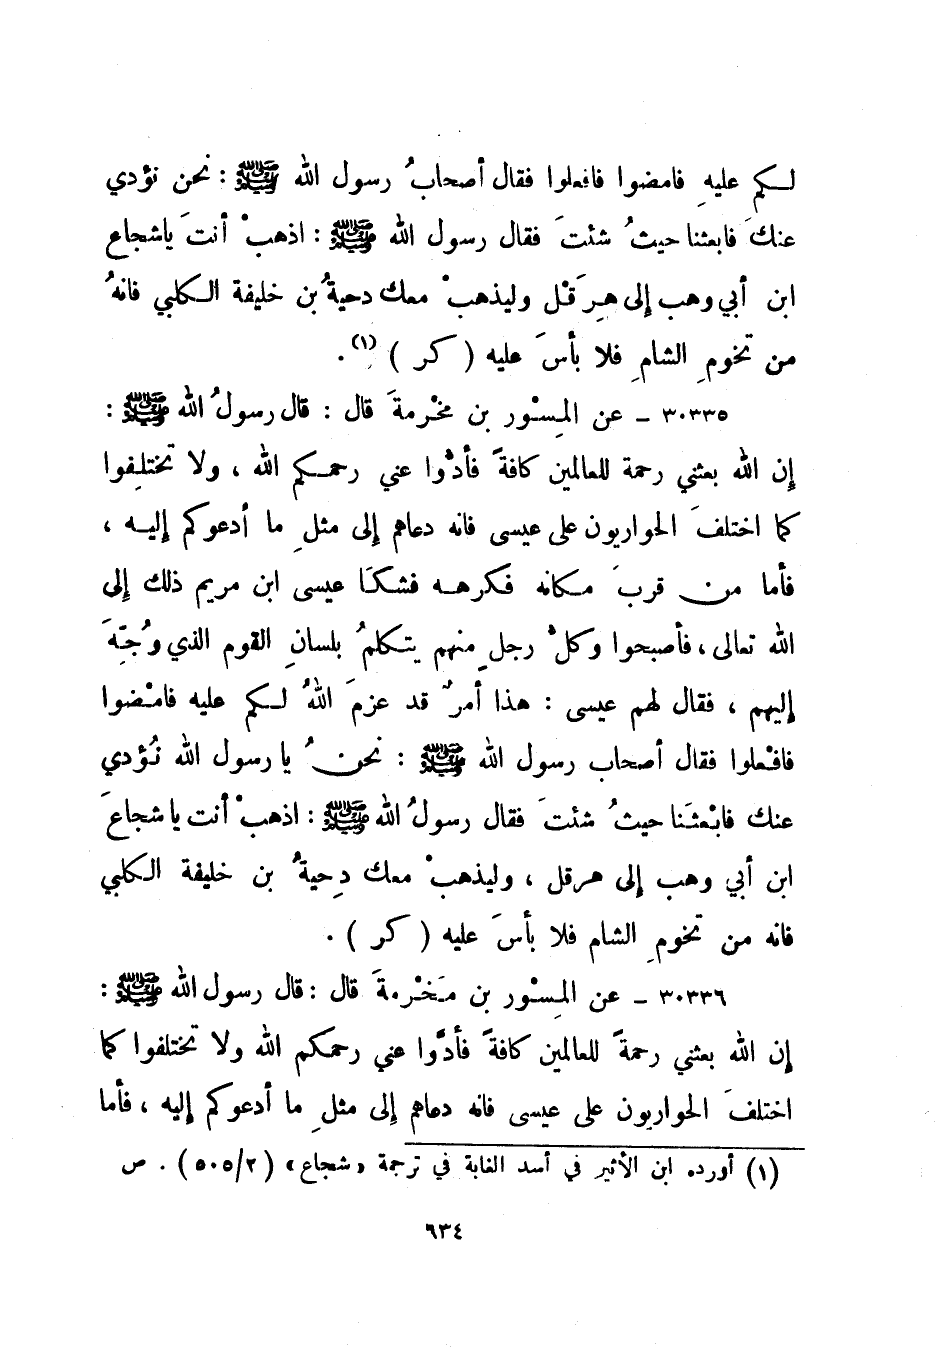 لكم عليهِ فامضوا فافعلوا فقال أصحابُ رسول الله ﷺ : نحن نؤدي
عنكَ فابعثنا حيثُ شئتَ فقال رسول الله ﷺ : اذهبْ أنتَ ياشجاع
ابن أبي وهب إلى هِرَقْل وليذهبْ معك دحيةُ بن خليفة الكلبي فانهُ
من تخومِ الشامِ فلا بأسَ عليه ( كر ) (١) .
٣٠٣٣٥ – عن المِسْور بن مخْرمةَ قال : قال رسولُ الله ﷺ :
إن الله بعثني رحمة للعالمين كافةً فأدُّوا عني رحمكم الله ، ولا تختلِفوا
كما اختلفَ الحواريون على عيسى فانه دعاهم إلى مثلِ ما أدعوكم إليه ،
فأما من قربَ مكانه فكرهه فشكَا عيسى ابن مريم ذلك إلى
الله تعالى ، فأصبحوا وكلُّ رجلٍ منهم يتكلمُ بلسانِ القوم الذي وُجِّهَ
إليهم ، فقال لهم عيسى : هذا أمرٌ قد عزمَ اللهُ لكم عليه فامْضوا
فافْعلوا فقال أصحاب رسول الله ﷺ : نحنُ يا رسول الله نُؤدي
عنك فابْعثَنا حيثُ شئتَ فقال رسولُ الله ﷺ : اذهبْ أنت يا شجاعَ
ابن أبي وهب إلى هرقل ، وليذهبْ معك دِحيةُ بن خليفة الكلبي
فانه من تخومِ الشام فلا بأسَ عليه ( كر ) .
٣٠٣٣٦ – عن المِسْور بن مَخْرمةَ قال : قال رسول الله ﷺ :
إن الله بعثني رحمةً للعالمين كافةً فأدُّوا عني رحمكم الله ولا تختلفوا كما
اختلفَ الحواريون على عيسى فانه دعاهم إلى مثلِ ما أدعوكم إليه ، فأما
(١) أورده ابن الأثير في أسد الغابة في ترجمة «شجاع» (٥٠٥/٢) . ص
٦٣٤